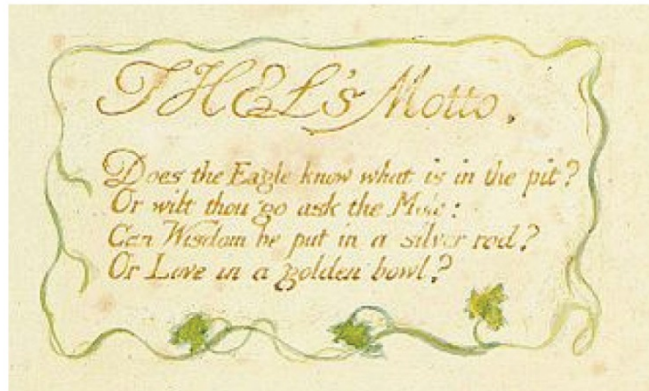 THEL's Motto.
Does the Eagle know what is in the pit?
Or wilt thou go ask the Mole:
Can Wisdom be put in a silver rod?
Or Love in a golden bowl?